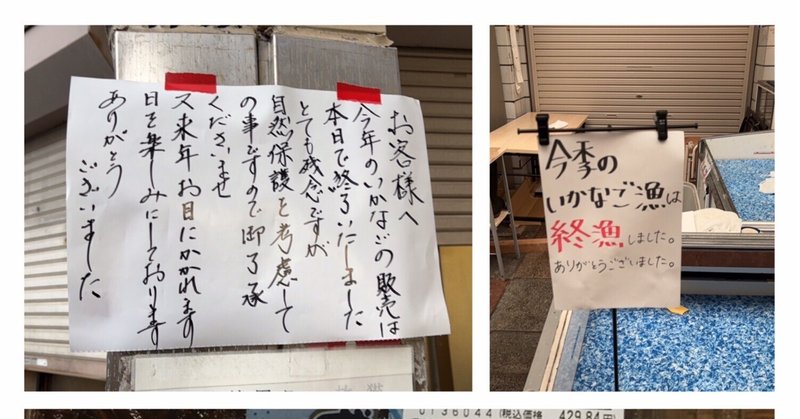 お客様へ
今年のいかなごの販売は
本日で終了いたしました
とても残念ですが
自然保護を考慮して
の事ですので御了承
くださいませ
又来年お目にかかれます
日を楽しみにしております
ありがとう
ございました
今季の
いかなご漁は
終漁しました。
ありがとうございました。
0136044 (税込価格 429.84円)